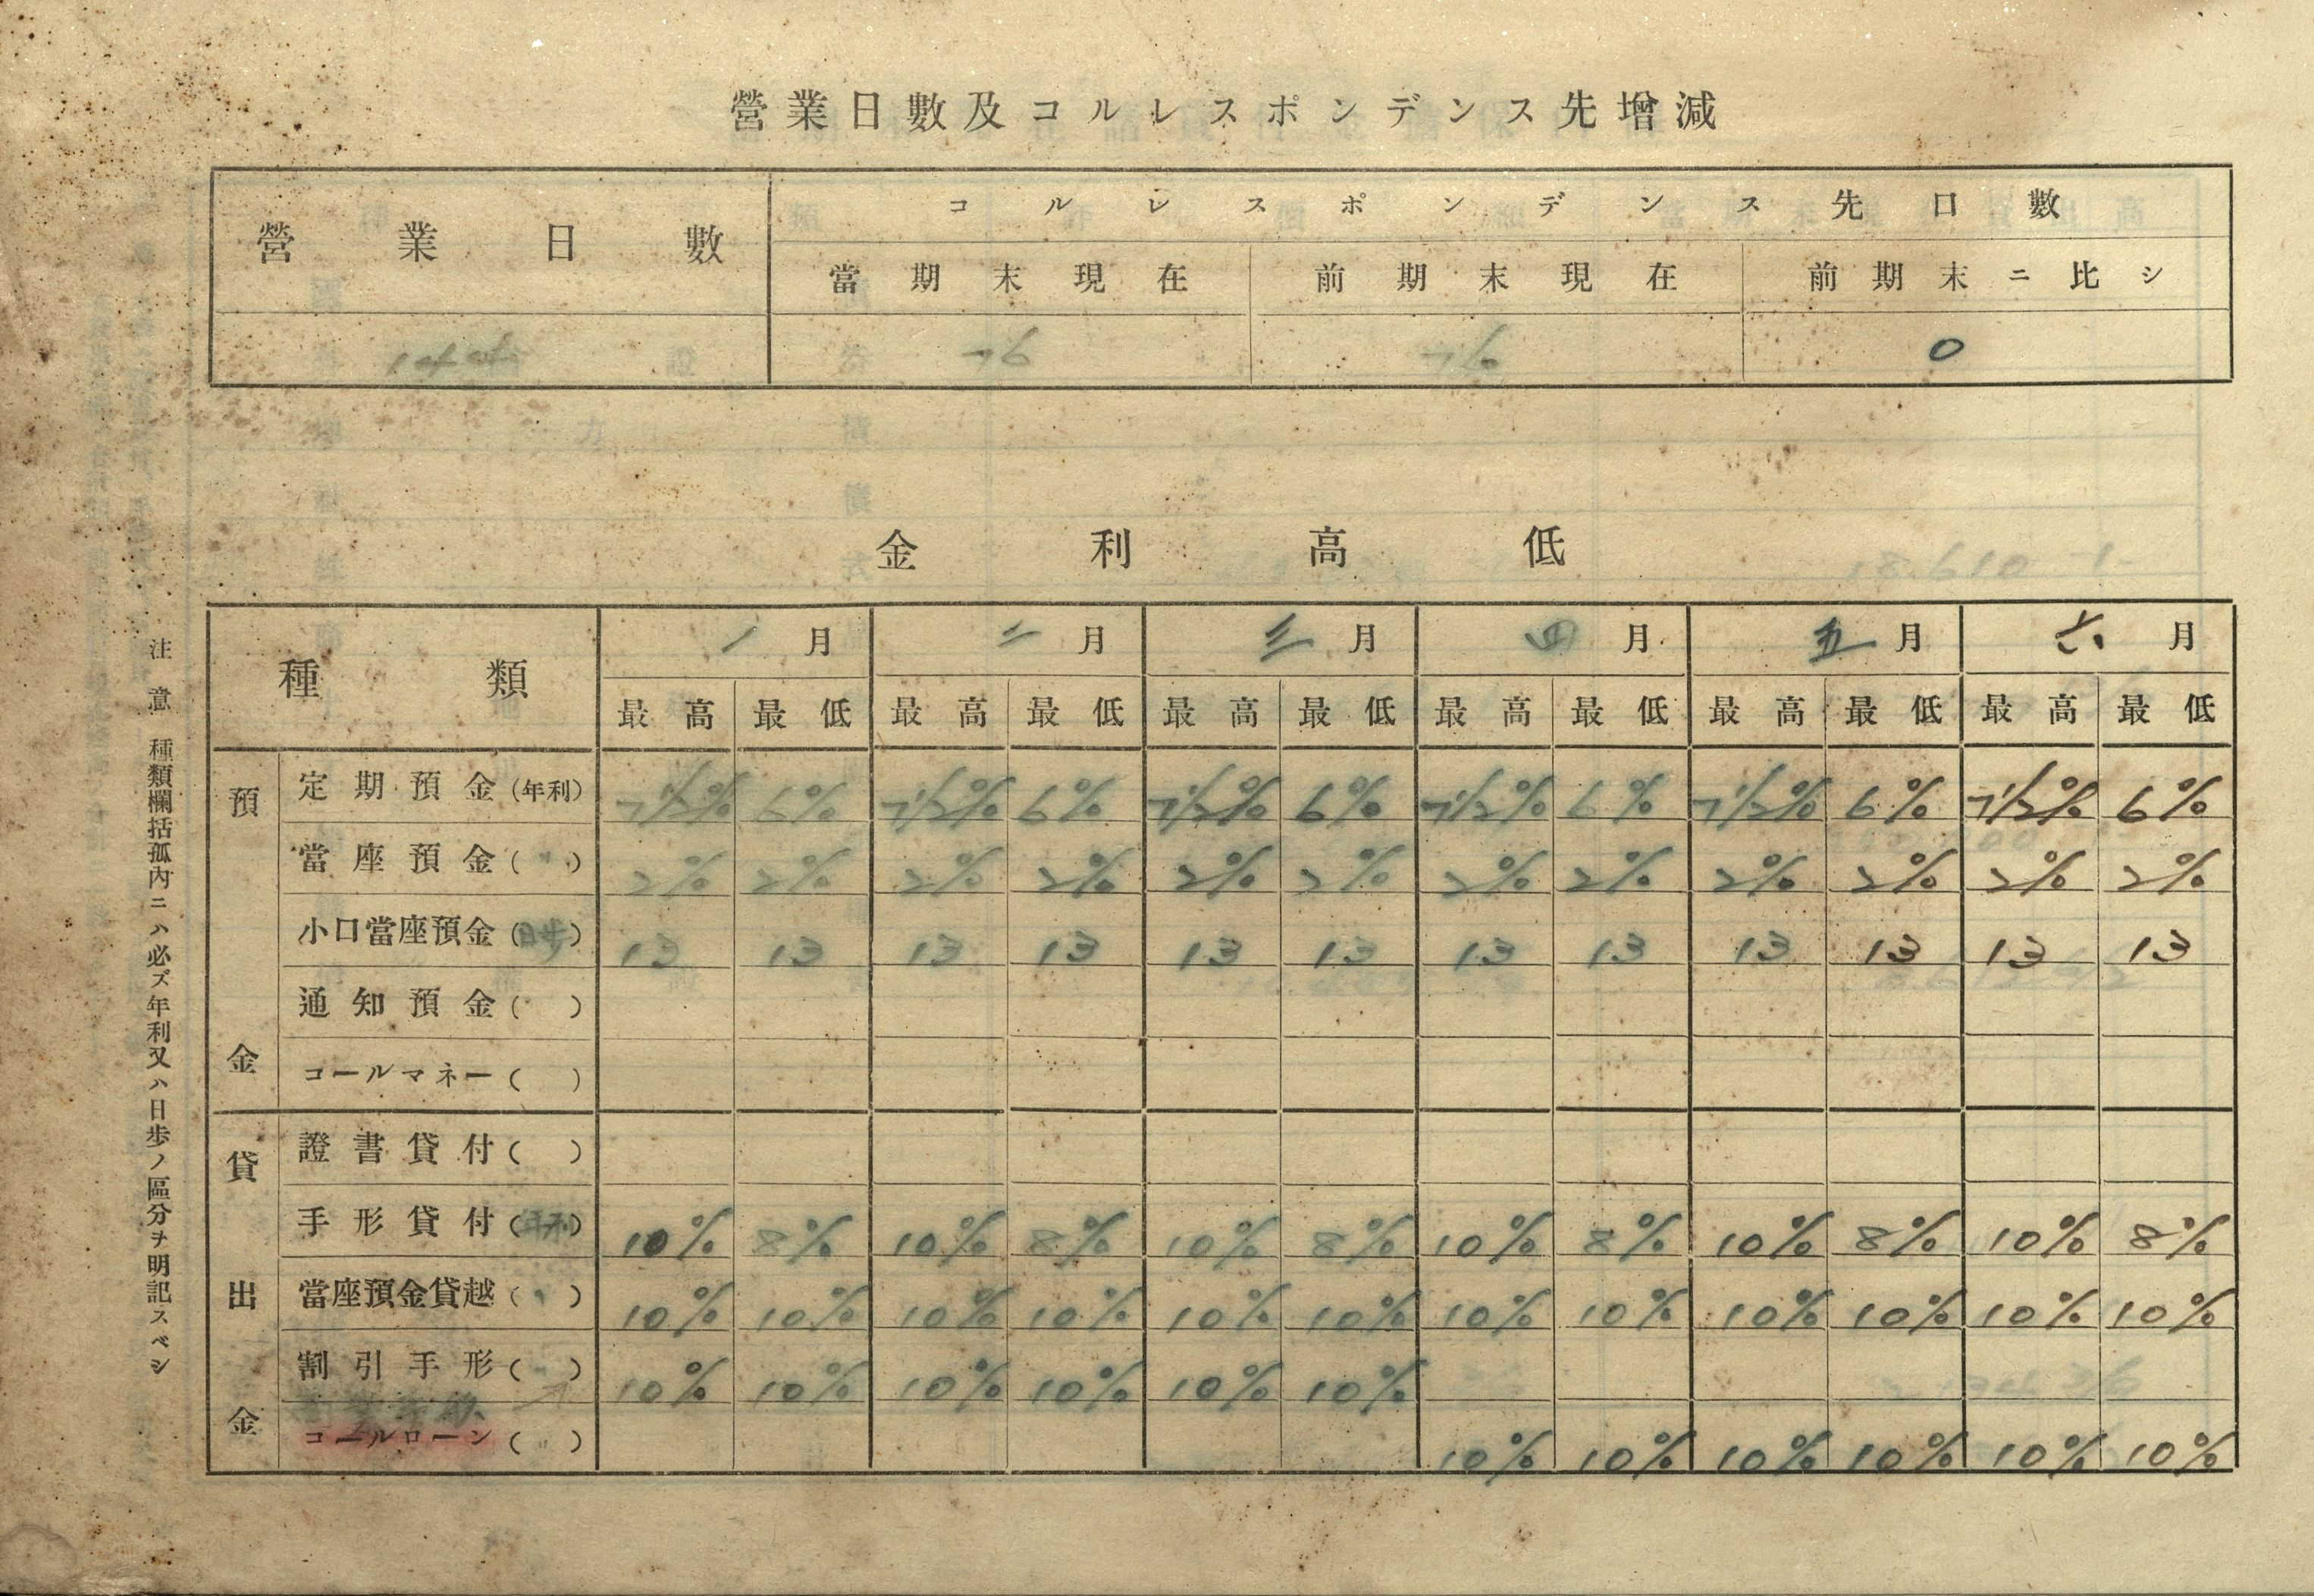 營業日數及コルレスポンデンス先增減
營業日數 コルレスポンデンス先口數
當期末現在 前期末現在 前期末ニ比シ
144 76 76 0
金利高低
種類 一月 二月 三月 四月 五月 六月
最高 最低 最高 最低 最高 最低 最高 最低 最高 最低 最高 最低
預金
定期預金(年利) 7 1/2% 6% 7 1/2% 6% 7 1/2% 6% 7 1/2% 6% 7 1/2% 6% 7 1/2% 6%
當座預金(〃) 2% 2% 2% 2% 2% 2% 2% 2% 2% 2% 2% 2%
小口當座預金(日歩) 13 13 13 13 13 13 13 13 13 13 13 13
通知預金( )
コールマネー( )
貸出金
證書貸付( )
手形貸付(年利) 10% 8% 10% 8% 10% 8% 10% 8% 10% 8% 10% 8%
當座預金貸越(〃) 10% 10% 10% 10% 10% 10% 10% 10% 10% 10% 10% 10%
割引手形(〃) 10% 10% 10% 10% 10% 10%
コールローン(〃) 10% 10% 10% 10% 10% 10%
注意 種類欄括孤內ニハ必ズ年利又ハ日歩ノ區分ヲ明記スベシ